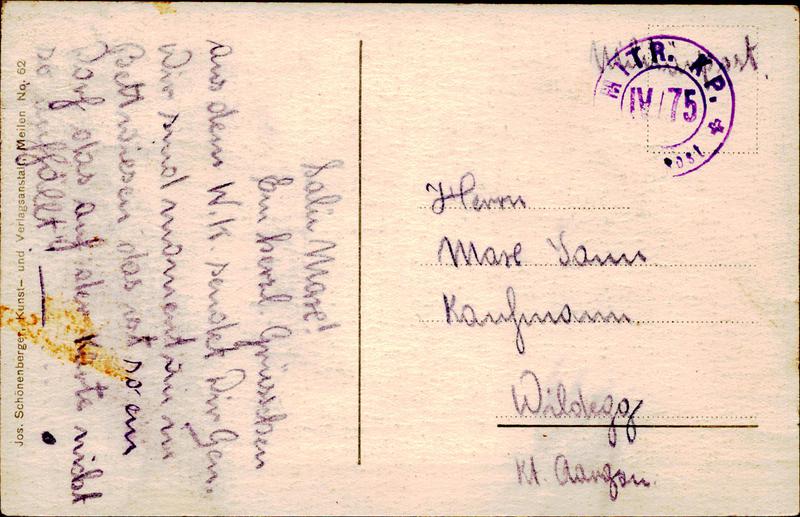 Militärpost.
MITR. KP.
IV/75
Post
Herrn
Max
Kaufmann
Wildegg
Kt. Aargau.
Salü Max!
Ein herzl. Grüsschen
aus dem W.K. sendet Dir
Wir sind momentan in
das ist so ein
das auf der Karte nicht
so auffällt!
Jos. Schönenberger, Kunst- und Verlagsanstalt, Meilen No. 62